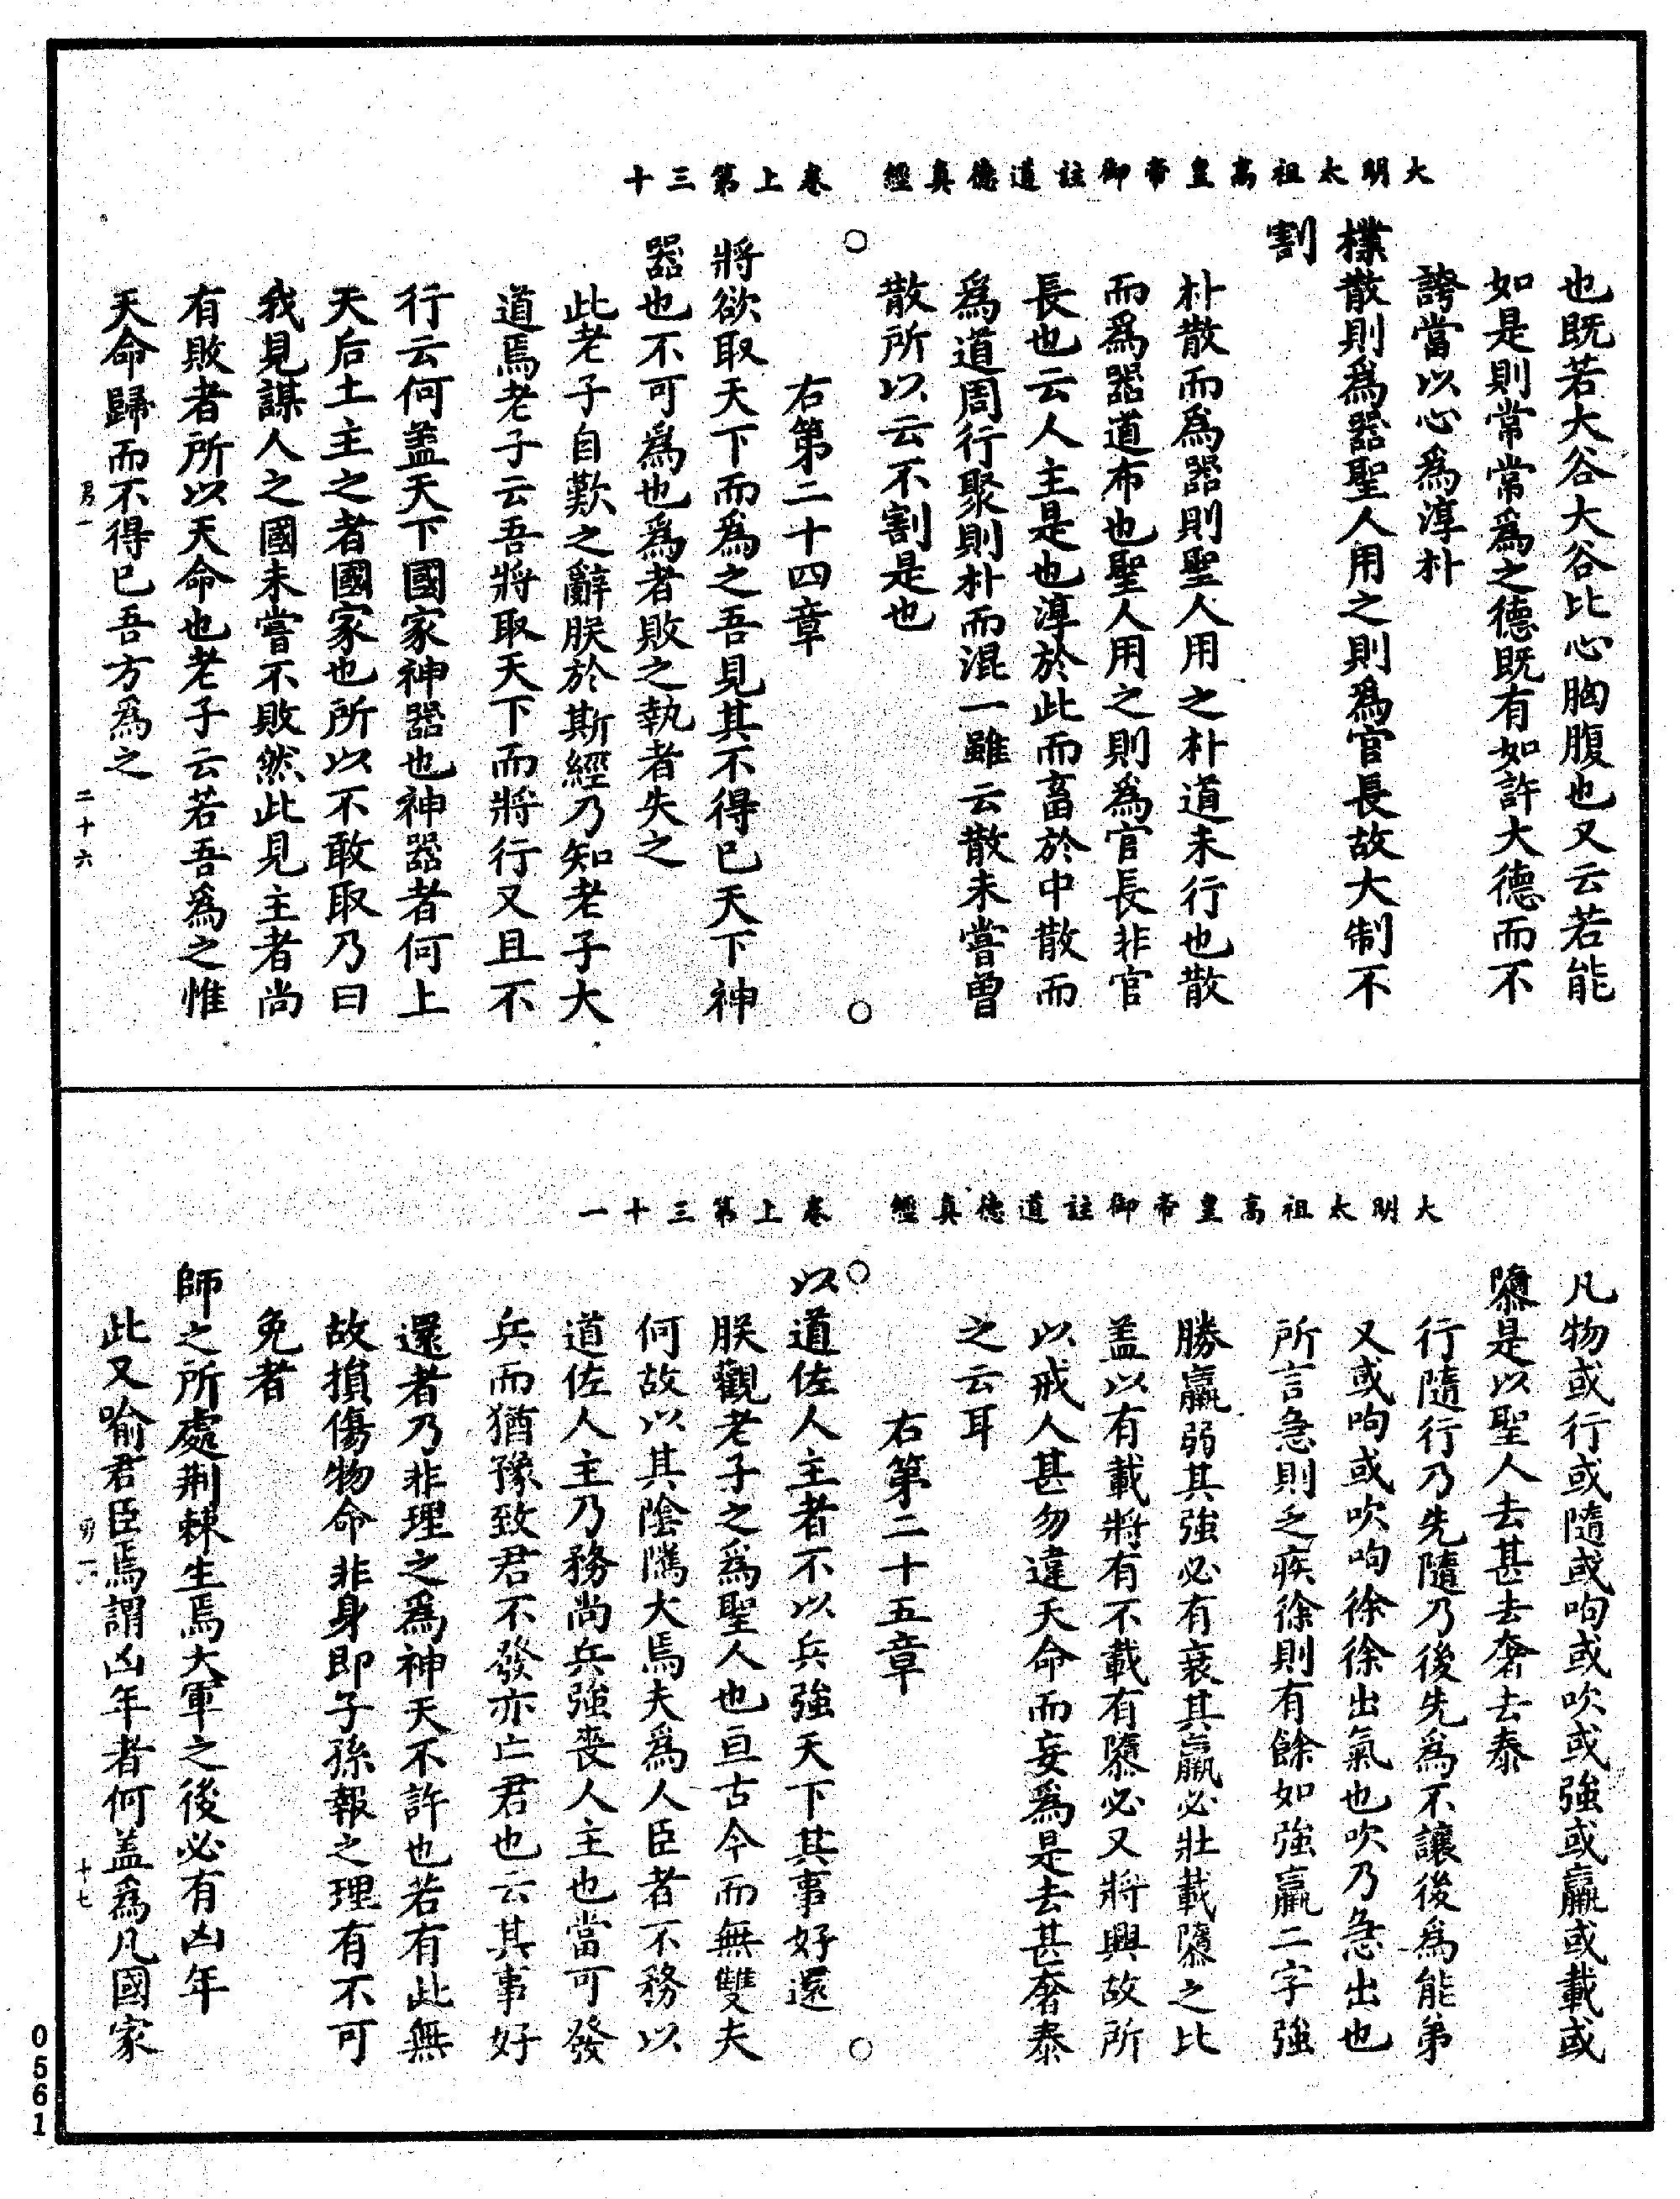 大明太祖高皇帝御註道德真經　卷上第三十
也既若大谷大谷比心胸腹也又云若能
如是則常常為之德既有如許大德而不
誇當以心為淳朴
樸散則為器聖人用之則為官長故大制不
割
朴散而為器則聖人用之朴道未行也散
而為器道布也聖人用之則為官長非官
長也云人主是也淳於此而畜於中散而
為道周行聚則朴而混一雖云散未嘗曾
散所以云不割是也
右第二十四章
將欲取天下而為之吾見其不得已天下神
器也不可為也為者敗之執者失之
此老子自歎之辭朕於斯經乃知老子大
道焉老子云吾將取天下而將行又且不
行云何盖天下國家神器也神器者何上
天后土主之者國家也所以不敢取乃曰
我見謀人之國未嘗不敗然此見主者尚
有敗者所以天命也老子云若吾為之惟
天命歸而不得已吾方為之
二十六
大明太祖高皇帝御註道德真經　卷上第三十一
凡物或行或隨或呴或吹或強或羸或載或
隳是以聖人去甚去奢去泰
行隨行乃先隨乃後先為不讓後為能弟
又或呴或吹呴徐徐出氣也吹乃急出也
所言急則乏疾徐則有餘如強羸二字強
勝羸弱其強必有衰其羸必壯載隳之比
盖以有載將有不載有隳必又將興故所
以戒人甚勿違天命而妄為是去甚奢泰
之云耳
右第二十五章
以道佐人主者不以兵強天下其事好還
朕觀老子之為聖人也亘古今而無雙夫
何故以其陰隲大焉夫為人臣者不務以
道佐人主乃務尚兵強喪人主也當可發
兵而猶豫致君不發亦亡君也云其事好
還者乃非理之為神天不許也若有此無
故損傷物命非身即子孫報之理有不可
免者
師之所處荆棘生焉大軍之後必有凶年
此又喻君臣焉謂凶年者何盖為凡國家
十七
0561